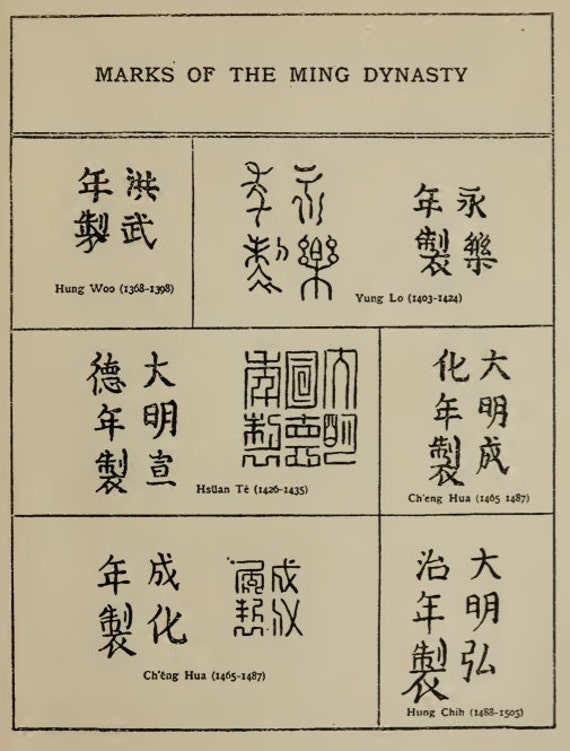 MARKS OF THE MING DYNASTY
洪武
年製
Hung Woo (1368-1398)
永樂
年製
永樂
年製
Yung Lo (1403-1424)
大明宣
德年製
大明
宣德
年製
Hsüan Tê (1426-1435)
大明成
化年製
Ch'eng Hua (1465 1487)
成化
年製
成化
年製
Ch'êng Hua (1465-1487)
大明弘
治年製
Hung Chih (1488-1505)